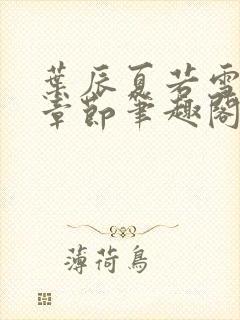 葉辰夏若雪
章節筆趣閣
薄荷鳥